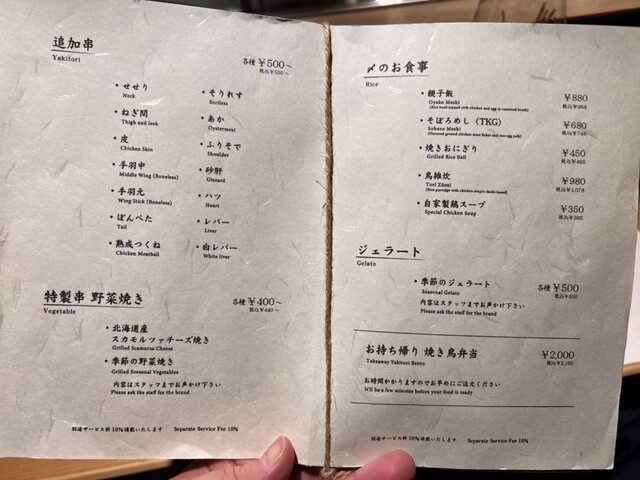 追加串
Yakitori
各種 ¥500~
税込¥550~
・せせり
Neck
・ねぎ間
Thigh and leek
・皮
Chicken Skin
・手羽中
Middle Wing (Boneless)
・手羽元
Wing Stick (Boneless)
・ぼんぺた
Tail
・熟成つくね
Chicken Meatball
・そりれす
Soriless
・あか
Oystermeat
・ふりそで
Shoulder
・砂肝
Gizzard
・ハツ
Heart
・レバー
Liver
・白レバー
White liver
特製串 野菜焼き
Vegetable
各種 ¥400~
税込¥440~
・北海道産
スカモルツァチーズ焼き
Grilled Scamorza Cheese
・季節の野菜焼き
Grilled Seasonal Vegetables
内容はスタッフまでお声かけ下さい
Please ask the staff for the brand
別途サービス料10%頂戴いたします Separate Service Fee 10%
〆のお食事
Rice
・親子飯
Oyako Meshi
(Rice bowl topped with chicken and egg in seasoned broth)
¥880
税込¥968
・そぼろめし (TKG)
Soboro Meshi
¥680
税込¥748
・焼きおにぎり
Grilled Rice Ball
¥450
税込¥495
・鳥雑炊
Tori Zōsui
¥980
税込¥1,078
・自家製鶏スープ
Special Chicken Soup
¥350
税込¥385
ジェラート
Gelato
・季節のジェラート
Seasonal Gelato
¥500
税込¥550
内容はスタッフまでお声かけ下さい
Please ask the staff for the brand
お持ち帰り 焼き鳥弁当
Takeaway Yakitori Bento
¥2,000
税込¥2,160
お時間かかりますのでお早めにご注文ください
It'll be a few minutes before your food is ready
別途サービス料10%頂戴いたします Separate Service Fee 10%